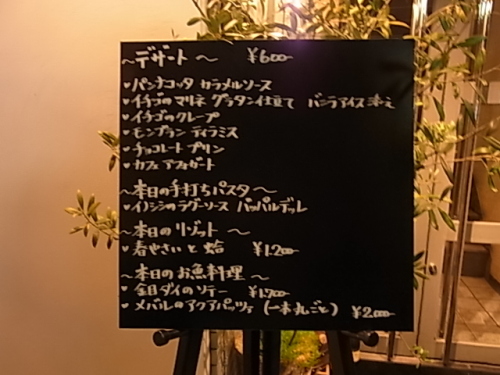 〜デザート〜 ¥600-
♥パンナコッタ カラメルソース
♥イチゴのマリネ グラタン仕立て バニラアイス添え
♥イチゴのクレープ
♥モンブラン ティラミス
♥チョコレート プリン
♥カフェ アフォガート
〜本日の手打ちパスタ〜
♥イノシシのラグーソース パッパルデッレ
〜本日のリゾット〜
♥春やさいと蛤 ¥1,200-
〜本日のお魚料理〜
♥金目ダイのソテー ¥1,700-
♥メバルのアクアパッツァ (一本丸ごと) ¥2,000-